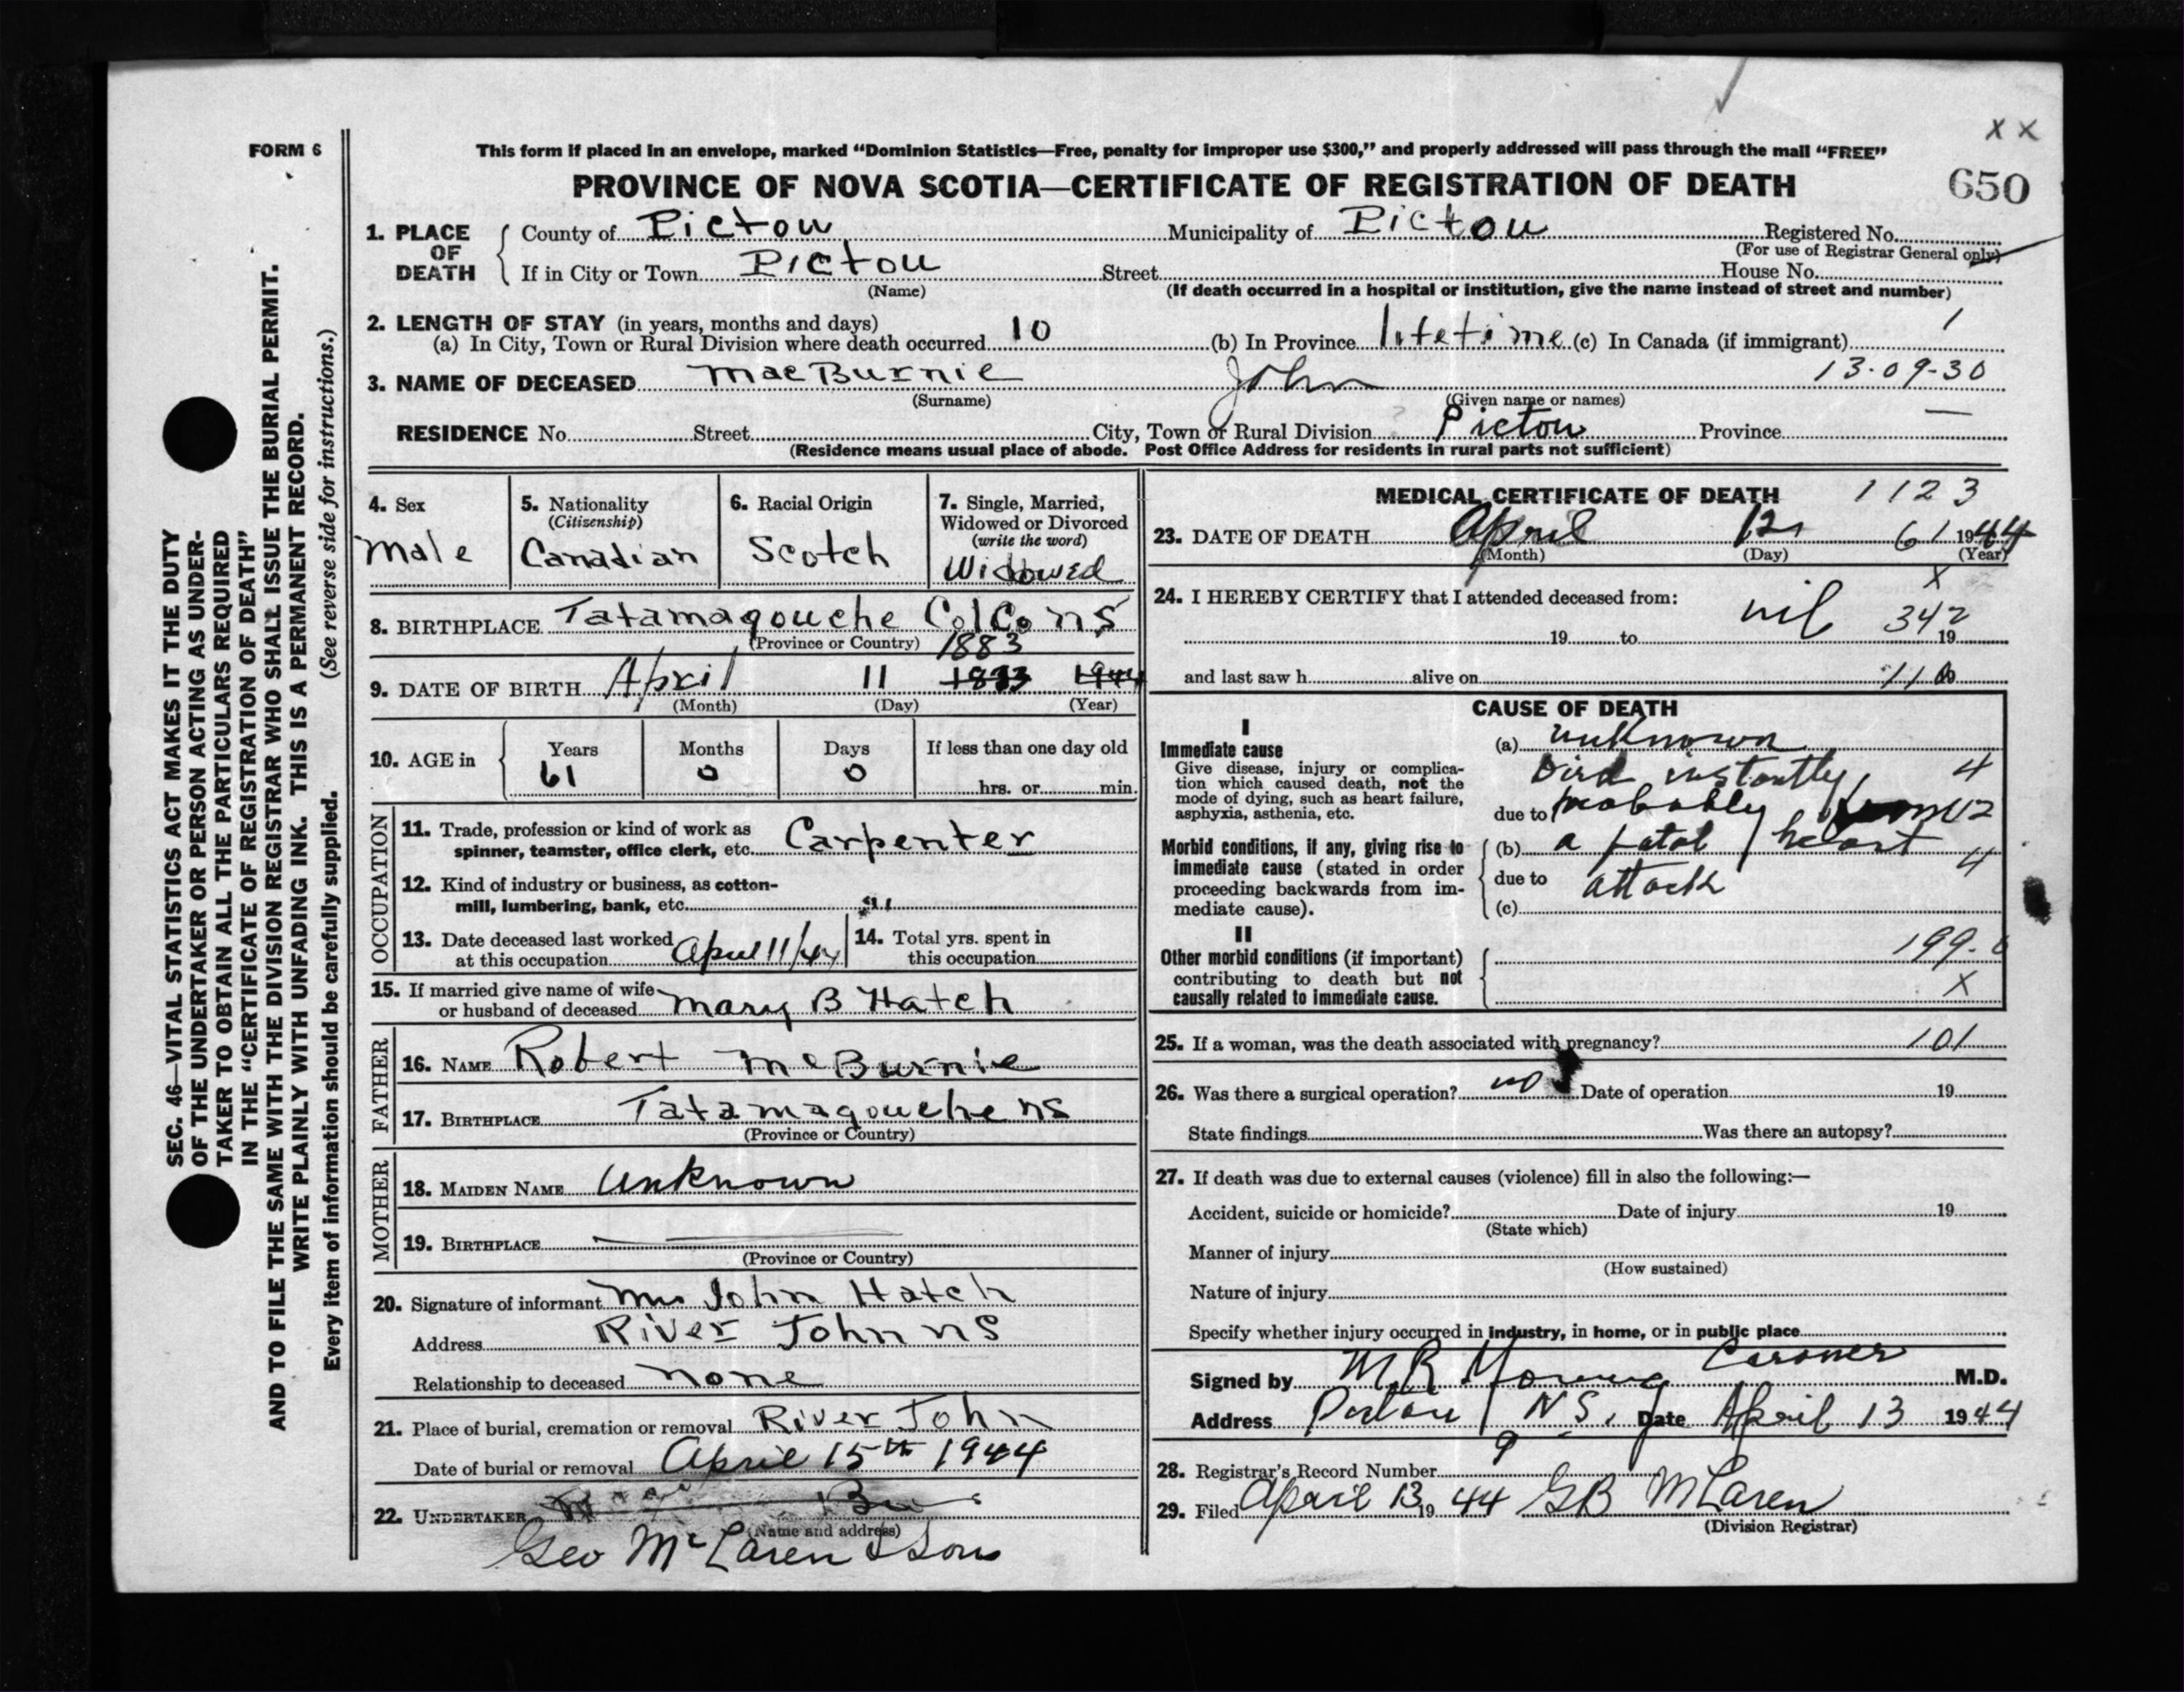 FORM 6
This form if placed in an envelope, marked “Dominion Statistics—Free, penalty for improper use $300,” and properly addressed will pass through the mail “FREE”
X X
PROVINCE OF NOVA SCOTIA—CERTIFICATE OF REGISTRATION OF DEATH
650
1. PLACE OF DEATH
County of Pictou Municipality of Pictou Registered No.
(For use of Registrar General only)
If in City or Town Pictou Street House No.
(Name) (If death occurred in a hospital or institution, give the name instead of street and number)
2. LENGTH OF STAY (in years, months and days) 1
(a) In City, Town or Rural Division where death occurred 10 (b) In Province lifetime (c) In Canada (if immigrant)
3. NAME OF DECEASED MacBurnie John 13-09-30
(Surname) (Given name or names)
RESIDENCE No. Street City, Town or Rural Division Pictou Province —
(Residence means usual place of abode. Post Office Address for residents in rural parts not sufficient)
4. Sex
Male
5. Nationality
(Citizenship)
Canadian
6. Racial Origin
Scotch
7. Single, Married,
Widowed or Divorced
(write the word)
Widowed
8. BIRTHPLACE Tatamagouche Col Co NS
(Province or Country) 1883
9. DATE OF BIRTH April 11 1944
(Month) (Day) (Year)
10. AGE in
Years Months Days If less than one day old
61 0 0
hrs. or min.
OCCUPATION
11. Trade, profession or kind of work as
spinner, teamster, office clerk, etc. Carpenter
12. Kind of industry or business, as cotton-
mill, lumbering, bank, etc. "
13. Date deceased last worked
at this occupation April 11/44
14. Total yrs. spent in
this occupation
15. If married give name of wife
or husband of deceased Mary B Hatch
FATHER
16. NAME Robert McBurnie
17. BIRTHPLACE Tatamagouche NS
(Province or Country)
MOTHER
18. MAIDEN NAME Unknown
19. BIRTHPLACE
(Province or Country)
20. Signature of informant Mrs John Hatch
Address River John NS
Relationship to deceased None
21. Place of burial, cremation or removal River John
Date of burial or removal April 15th 1944
22. UNDERTAKER
(Name and address)
Geo McLaren & Son
MEDICAL CERTIFICATE OF DEATH 1123
23. DATE OF DEATH April 12 61 1944
(Month) (Day) (Year)
X
24. I HEREBY CERTIFY that I attended deceased from: nil 342
19 to 19
and last saw h alive on 110
CAUSE OF DEATH
I
Immediate cause
Give disease, injury or complica-
tion which caused death, not the
mode of dying, such as heart failure,
asphyxia, asthenia, etc.
(a) unknown
Died instantly, 4
due to probably from 02
Morbid conditions, if any, giving rise to
immediate cause (stated in order
proceeding backwards from im-
mediate cause).
(b) a fatal heart
4
due to attack
(c)
II
Other morbid conditions (if important)
contributing to death but not
causally related to immediate cause.
199.6
X
25. If a woman, was the death associated with pregnancy? 101
26. Was there a surgical operation? no Date of operation 19
State findings Was there an autopsy?
27. If death was due to external causes (violence) fill in also the following:—
Accident, suicide or homicide? Date of injury 19
(State which)
Manner of injury
(How sustained)
Nature of injury
Specify whether injury occurred in industry, in home, or in public place
Signed by M.R. Young Coroner M.D.
Address Pictou N.S. Date April 13 1944
28. Registrar’s Record Number 9
29. Filed April 13 1944 GB McLaren
(Division Registrar)
SEC. 46—VITAL STATISTICS ACT MAKES IT THE DUTY
OF THE UNDERTAKER OR PERSON ACTING AS UNDER-
TAKER TO OBTAIN ALL THE PARTICULARS REQUIRED
IN THE “CERTIFICATE OF REGISTRATION OF DEATH”
AND TO FILE THE SAME WITH THE DIVISION REGISTRAR WHO SHALL ISSUE THE BURIAL PERMIT.
WRITE PLAINLY WITH UNFADING INK. THIS IS A PERMANENT RECORD.
Every item of information should be carefully supplied. (See reverse side for instructions.)